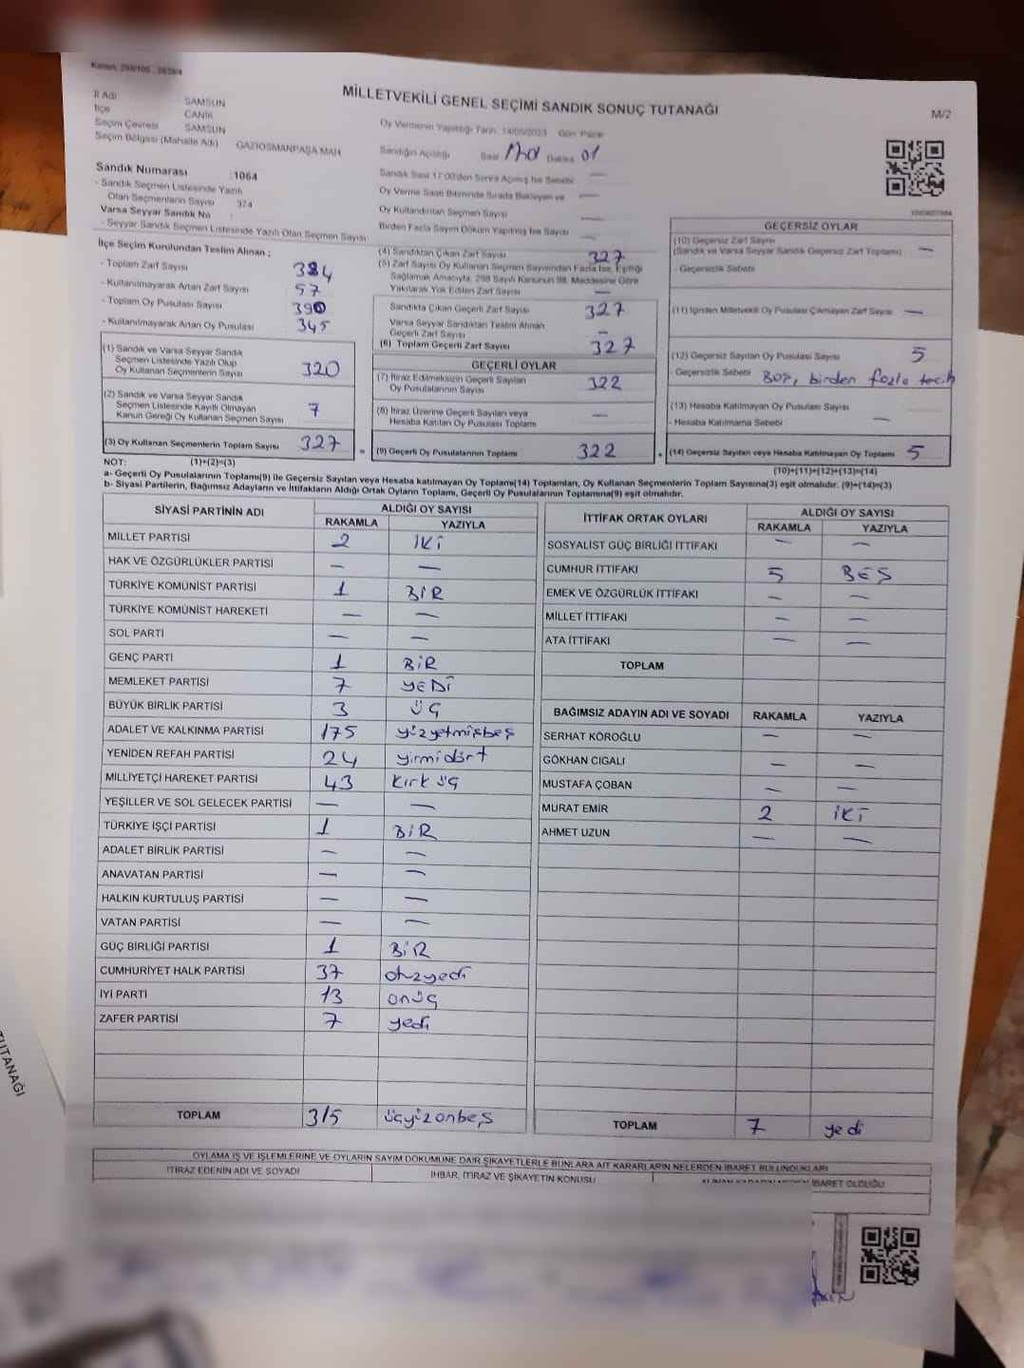 MİLLETVEKİLİ GENEL SEÇİMİ SANDIK SONUÇ TUTANAĞI
M/2
İl Adı SAMSUN
İlçe CANİK
Seçim Çevresi SAMSUN
Seçim Bölgesi (Mahalle Adı) GAZİOSMANPAŞA MAH
Sandık Numarası :1064
- Sandık Seçmen Listesinde Yazılı
Olan Seçmenlerin Sayısı 374
Varsa Seyyar Sandık No :
- Seyyar Sandık Seçmen Listesinde Yazılı Olan Seçmen Sayısı
Oy Vermenin Yapıldığı Tarih: 14/05/2023 Gün: Pazar
Sandığın Açıldığı Saat Dakika 01
Sandık Saat 17:00'den Sonra Açılmış İse Sebebi: —
Oy Verme Saati Bitiminde Sırada Bekleyen ve —
Oy Kullandırılan Seçmen Sayısı —
Birden Fazla Sayım Döküm Yapılmış İse Sayısı —
İlçe Seçim Kurulundan Teslim Alınan ;
- Toplam Zarf Sayısı 384
- Kullanılmayarak Artan Zarf Sayısı 57
- Toplam Oy Pusulası Sayısı 390
- Kullanılmayarak Artan Oy Pusulası 345
(1) Sandık ve Varsa Seyyar Sandık
Seçmen Listesinde Yazılı Olup
Oy Kullanan Seçmenlerin Sayısı 320
(2) Sandık ve Varsa Seyyar Sandık
Seçmen Listesinde Kayıtlı Olmayan
Kanun Gereği Oy Kullanan Seçmen Sayısı 7
(3) Oy Kullanan Seçmenlerin Toplam Sayısı 327
(4) Sandıktan Çıkan Zarf Sayısı 327
(5) Zarf Sayısı Oy Kullanan Seçmen Sayısından Fazla İse, Eşitliği
Sağlamak Amacıyla, 298 Sayılı Kanunun 98. Maddesine Göre
Yakılarak Yok Edilen Zarf Sayısı —
Sandıkta Çıkan Geçerli Zarf Sayısı 327
Varsa Seyyar Sandıktan Teslim Alınan
Geçerli Zarf Sayısı —
(6) Toplam Geçerli Zarf Sayısı 327
GEÇERLİ OYLAR
(7) İtiraz Edilmeksizin Geçerli Sayılan
Oy Pusulalarının Sayısı 322
(8) İtiraz Üzerine Geçerli Sayılan veya
Hesaba Katılan Oy Pusulaları Toplamı —
= (9) Geçerli Oy Pusulalarının Toplamı 322
GEÇERSİZ OYLAR
(10) Geçersiz Zarf Sayısı
(Sandık ve Varsa Seyyar Sandık Geçersiz Zarf Toplamı) —
- Geçersizlik Sebebi
(11) İçinden Milletvekili Oy Pusulası Çıkmayan Zarf Sayısı —
(12) Geçersiz Sayılan Oy Pusulası Sayısı 5
- Geçersizlik Sebebi BOŞ, birden fazla tecih
(13) Hesaba Katılmayan Oy Pusulası Sayısı
- Hesaba Katılmama Sebebi —
+ (14) Geçersiz Sayılan veya Hesaba Katılmayan Oy Toplamı 5
NOT: (1)+(2)=(3) (10)+(11)+(12)+(13)=(14)
a- Geçerli Oy Pusulalarının Toplamı(9) ile Geçersiz Sayılan veya Hesaba katılmayan Oy Toplamı(14) Toplamları, Oy Kullanan Seçmenlerin Toplam Sayısına(3) eşit olmalıdır. (9)+(14)=(3)
b- Siyasi Partilerin, Bağımsız Adayların ve İttifakların Aldığı Ortak Oyların Toplamı, Geçerli Oy Pusulalarının Toplamına(9) eşit olmalıdır.
SİYASİ PARTİNİN ADI ALDIĞI OY SAYISI
RAKAMLA YAZIYLA
MİLLET PARTİSİ 2 İKİ
HAK VE ÖZGÜRLÜKLER PARTİSİ — —
TÜRKİYE KOMÜNİST PARTİSİ 1 BİR
TÜRKİYE KOMÜNİST HAREKETİ — —
SOL PARTİ — —
GENÇ PARTİ 1 BİR
MEMLEKET PARTİSİ 7 YEDİ
BÜYÜK BİRLİK PARTİSİ 3 ÜÇ
ADALET VE KALKINMA PARTİSİ 175 yüzyetmişbeş
YENİDEN REFAH PARTİSİ 24 yirmidört
MİLLİYETÇİ HAREKET PARTİSİ 43 kırk üç
YEŞİLLER VE SOL GELECEK PARTİSİ — —
TÜRKİYE İŞÇİ PARTİSİ 1 BİR
ADALET BİRLİK PARTİSİ — —
ANAVATAN PARTİSİ — —
HALKIN KURTULUŞ PARTİSİ — —
VATAN PARTİSİ — —
GÜÇ BİRLİĞİ PARTİSİ 1 BİR
CUMHURİYET HALK PARTİSİ 37 otuzyedi
İYİ PARTİ 13 onüç
ZAFER PARTİSİ 7 yedi
TOPLAM 315 üçyüzonbeş
İTTİFAK ORTAK OYLARI ALDIĞI OY SAYISI
RAKAMLA YAZIYLA
SOSYALİST GÜÇ BİRLİĞİ İTTİFAKI — —
CUMHUR İTTİFAKI 5 BEŞ
EMEK VE ÖZGÜRLÜK İTTİFAKI — —
MİLLET İTTİFAKI — —
ATA İTTİFAKI — —
TOPLAM
BAĞIMSIZ ADAYIN ADI VE SOYADI RAKAMLA YAZIYLA
SERHAT KÖROĞLU — —
GÖKHAN CIGALI — —
MUSTAFA ÇOBAN — —
MURAT EMİR 2 İKİ
AHMET UZUN — —
TOPLAM 7 yedi
OYLAMA İŞ VE İŞLEMLERİNE VE OYLARIN SAYIM DÖKÜMÜNE DAİR ŞİKAYETLERLE BUNLARA AİT KARARLARIN NELERDEN İBARET BULUNDUKLARI
İTİRAZ EDENİN ADI VE SOYADI İHBAR, İTİRAZ VE ŞİKAYETİN KONUSU İBARET OLDUĞU
TUTANAĞI